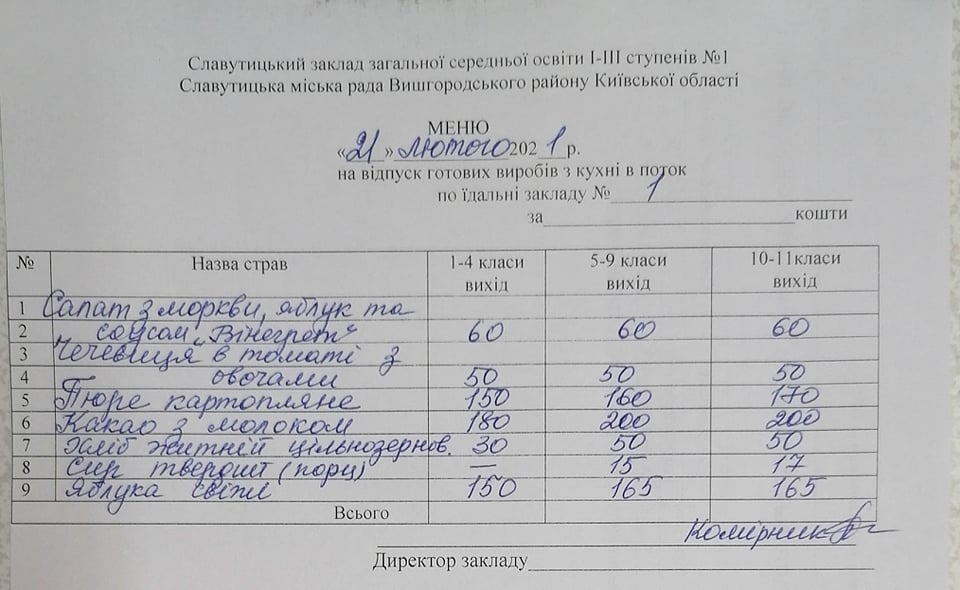 Славутицький заклад загальної середньої освіти І-ІІІ ступенів №1
Славутицька міська рада Вишгородського району Київської області
МЕНЮ
«21» лютого 2021 р.
на відпуск готових виробів з кухні в поток
по їдальні закладу № 1
за кошти
№ Назва страв 1-4 класи вихід 5-9 класи вихід 10-11класи вихід
1 Салат з моркви, яблук та
2 соусом „Вінегрет“ 60 60 60
3 Чечевиця в томаті з
4 овочами 50 50 50
5 Пюре картопляне 150 160 170
6 Какао з молоком 180 200 200
7 Хліб житній цільнозернов. 30 50 50
8 Сир твердий (порц) — 15 17
9 Яблука свіжі 150 165 165
Всього
Комірник
Директор закладу